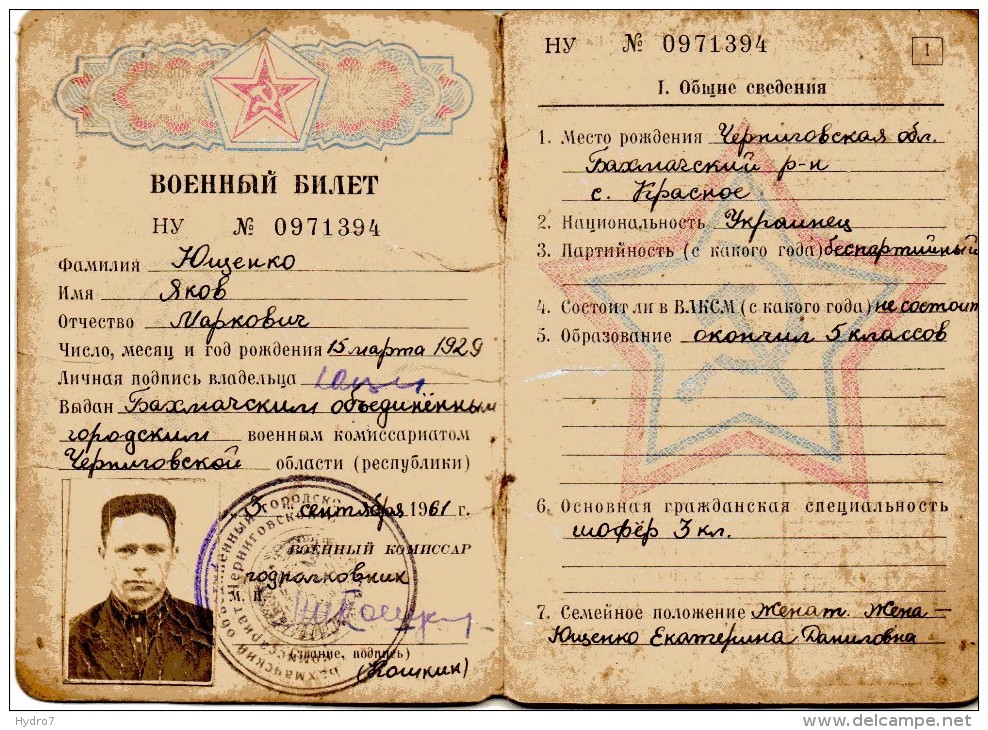 ВОЕННЫЙ БИЛЕТ
НУ № 0971394
Фамилия Ющенко
Имя Яков
Отчество Маркович
Число, месяц и год рождения 15 марта 1929
Личная подпись владельца
Выдан Бахмачским объединённым
городским военным комиссариатом
Черниговской области (республики)
3 сентября 1961 г.
ВОЕННЫЙ КОМИССАР
подполковник
М. П.
(звание, подпись)
(Кошкин)
НУ № 0971394
1
I. Общие сведения
1. Место рождения Черниговская обл.
Бахмачский р-н
с. Красное
2. Национальность Украинец
3. Партийность (с какого года) беспартийный
4. Состоит ли в ВЛКСМ (с какого года) не состоит
5. Образование окончил 5 классов
6. Основная гражданская специальность
шофёр 3 кл.
7. Семейное положение Женат. Жена —
Ющенко Екатерина Даниловна
Hydro7
www.delcampe.net